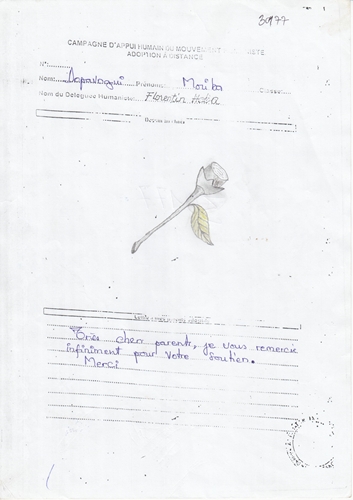 30977
CAMPAGNE D'APPUI HUMAIN DU MOUVEMENT
ADOPTION A DISTANCE
N°:
Nom: Dapavogui Prénoms: Moriba Classe:
Nom du Délégué Humaniste: Florentin Haba
Très cher parents, je vous remercie
infiniment pour votre soutien.
Merci